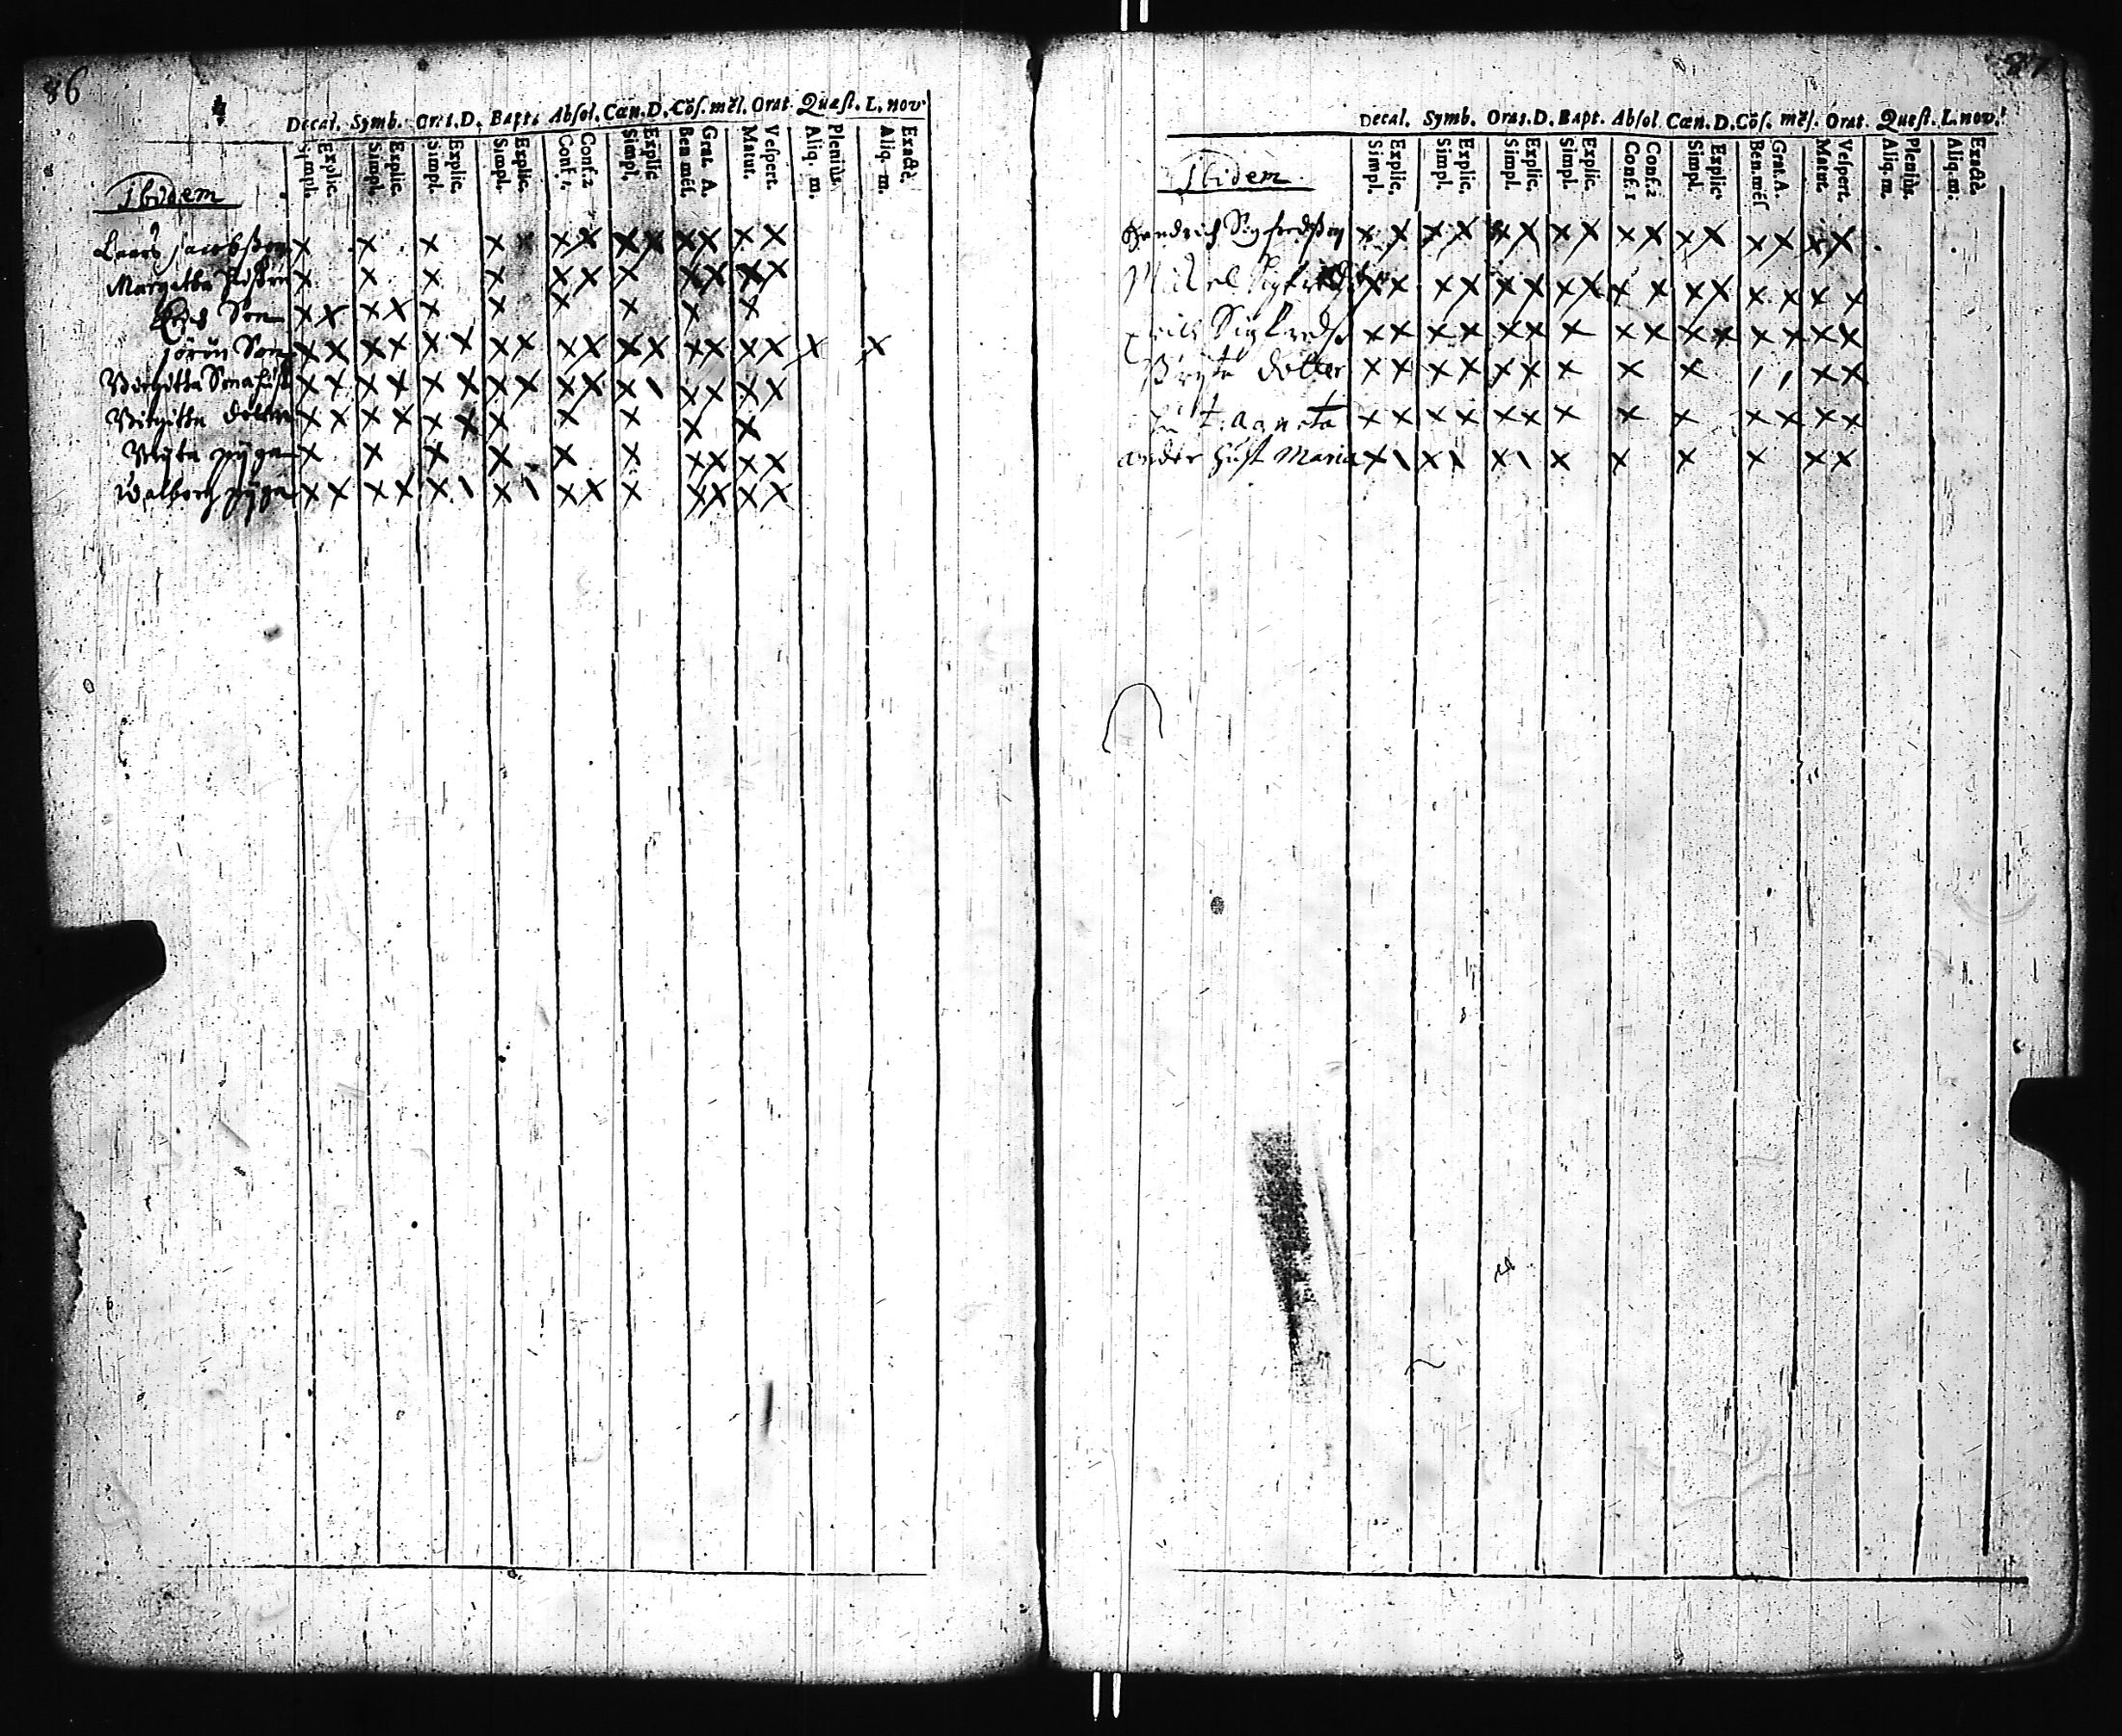 86
Decal. Symb. Orat. D. Bapt. Absol. Cæn. D. Cõs. mẽs. Orat. Quæst. L. nov.
Simpl. Explic. Simpl. Explic. Simpl. Explic. Simpl. Explic. Conf. 1. Conf. 2 Simpl. Explic Ben. mẽs. Grat. A. Matut. Vespert. Aliq. m. Pleniùs. Aliq. m. Exactè.
Ibidem
Laars Jacobsson x x x x x x x x x x x x
Margetha x x x x x x x x x x x
Erich Son x x x x x x x x x x
Jörän Son x x x x x x x x x x x x x x x x x x
Birgitta Sonahust x x x x x x x x x x x \ x x x x
Birgitta dotter x x x x x x x x x x x
Bryta pijga x x x x x x x x x x
Walborg pijga x x x x x \ x \ x x x x x x x
87
Decal. Symb. Orat. D. Bapt. Absol. Cæn. D. Cõs. mẽs. Orat. Quæst. L. nov.
Simpl. Explic. Simpl. Explic. Simpl. Explic. Simpl. Explic. Conf. 1 Conf. 2 Simpl. Explic. Ben. mẽs Grat. A. Matut. Vespert. Aliq. m. Pleniùs. Aliq. m. Exactè.
Ibidem
Hendrich Sigfredsson x x x x x x x x x x x x x x x x
Mickel Sigfredsson x x x x x x x x x x x x x x x x
Sigfredss x x x x x x x x x x x x x x x
Bryta dotter x x x x x x x x x / / x x
hust. Agneta x x x x x x x x x x x x x
ander hust Maria x \ x \ x \ x x x x x x